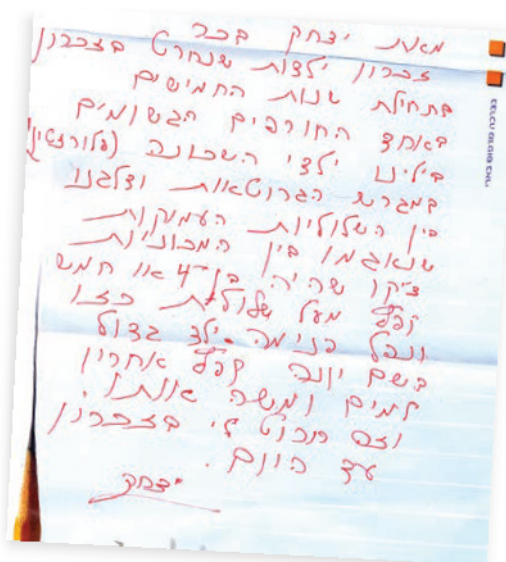 מאת יצחק בכר
זכרון ילדות שנחרט בזכרון
בתחילת שנות החמישים
באחד החורפים הגשומים
בילינו ילדי השכונה (פלורנטין)
במגרש הגרוטאות ודלגנו
בין השלוליות העמוקות
שנאגמו בין המכוניות
ציקו שהיה בן 4 או חמש
קפץ מעל שלולית כזו
ונפל פנימה. ילד גדול
בשם יונה קפץ אחריו
למים ומשה אותו.
וזה חרוט לי בזכרון
עד היום.
יצחק